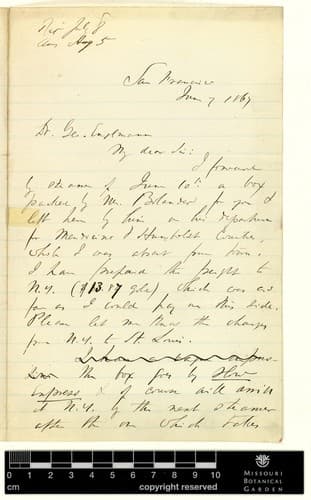 Rec July 8
Ans Aug 5
San Francisco
June 7 1867
Dr. Geo. Engelmann
My dear Sir:
I forward
by steamer of June 10th a box
packed by Mr. Bolander for you &
left here by him on his departure
for Mendocino & Humboldt Counties,
while I was absent from town.
I have prepaid the freight to
N.Y. ($13.87 gold) which was as
far as I could pay on this side.
Please let me know the charges
from N.Y. to St. Louis.
The box goes by slow
express & of course will arrive
at N.Y. by the next steamer
after the one which takes
0 1 2 3 4 5 6 7 8 9 10
cm
copyright reserved
MISSOURI
BOTANICAL
GARDEN